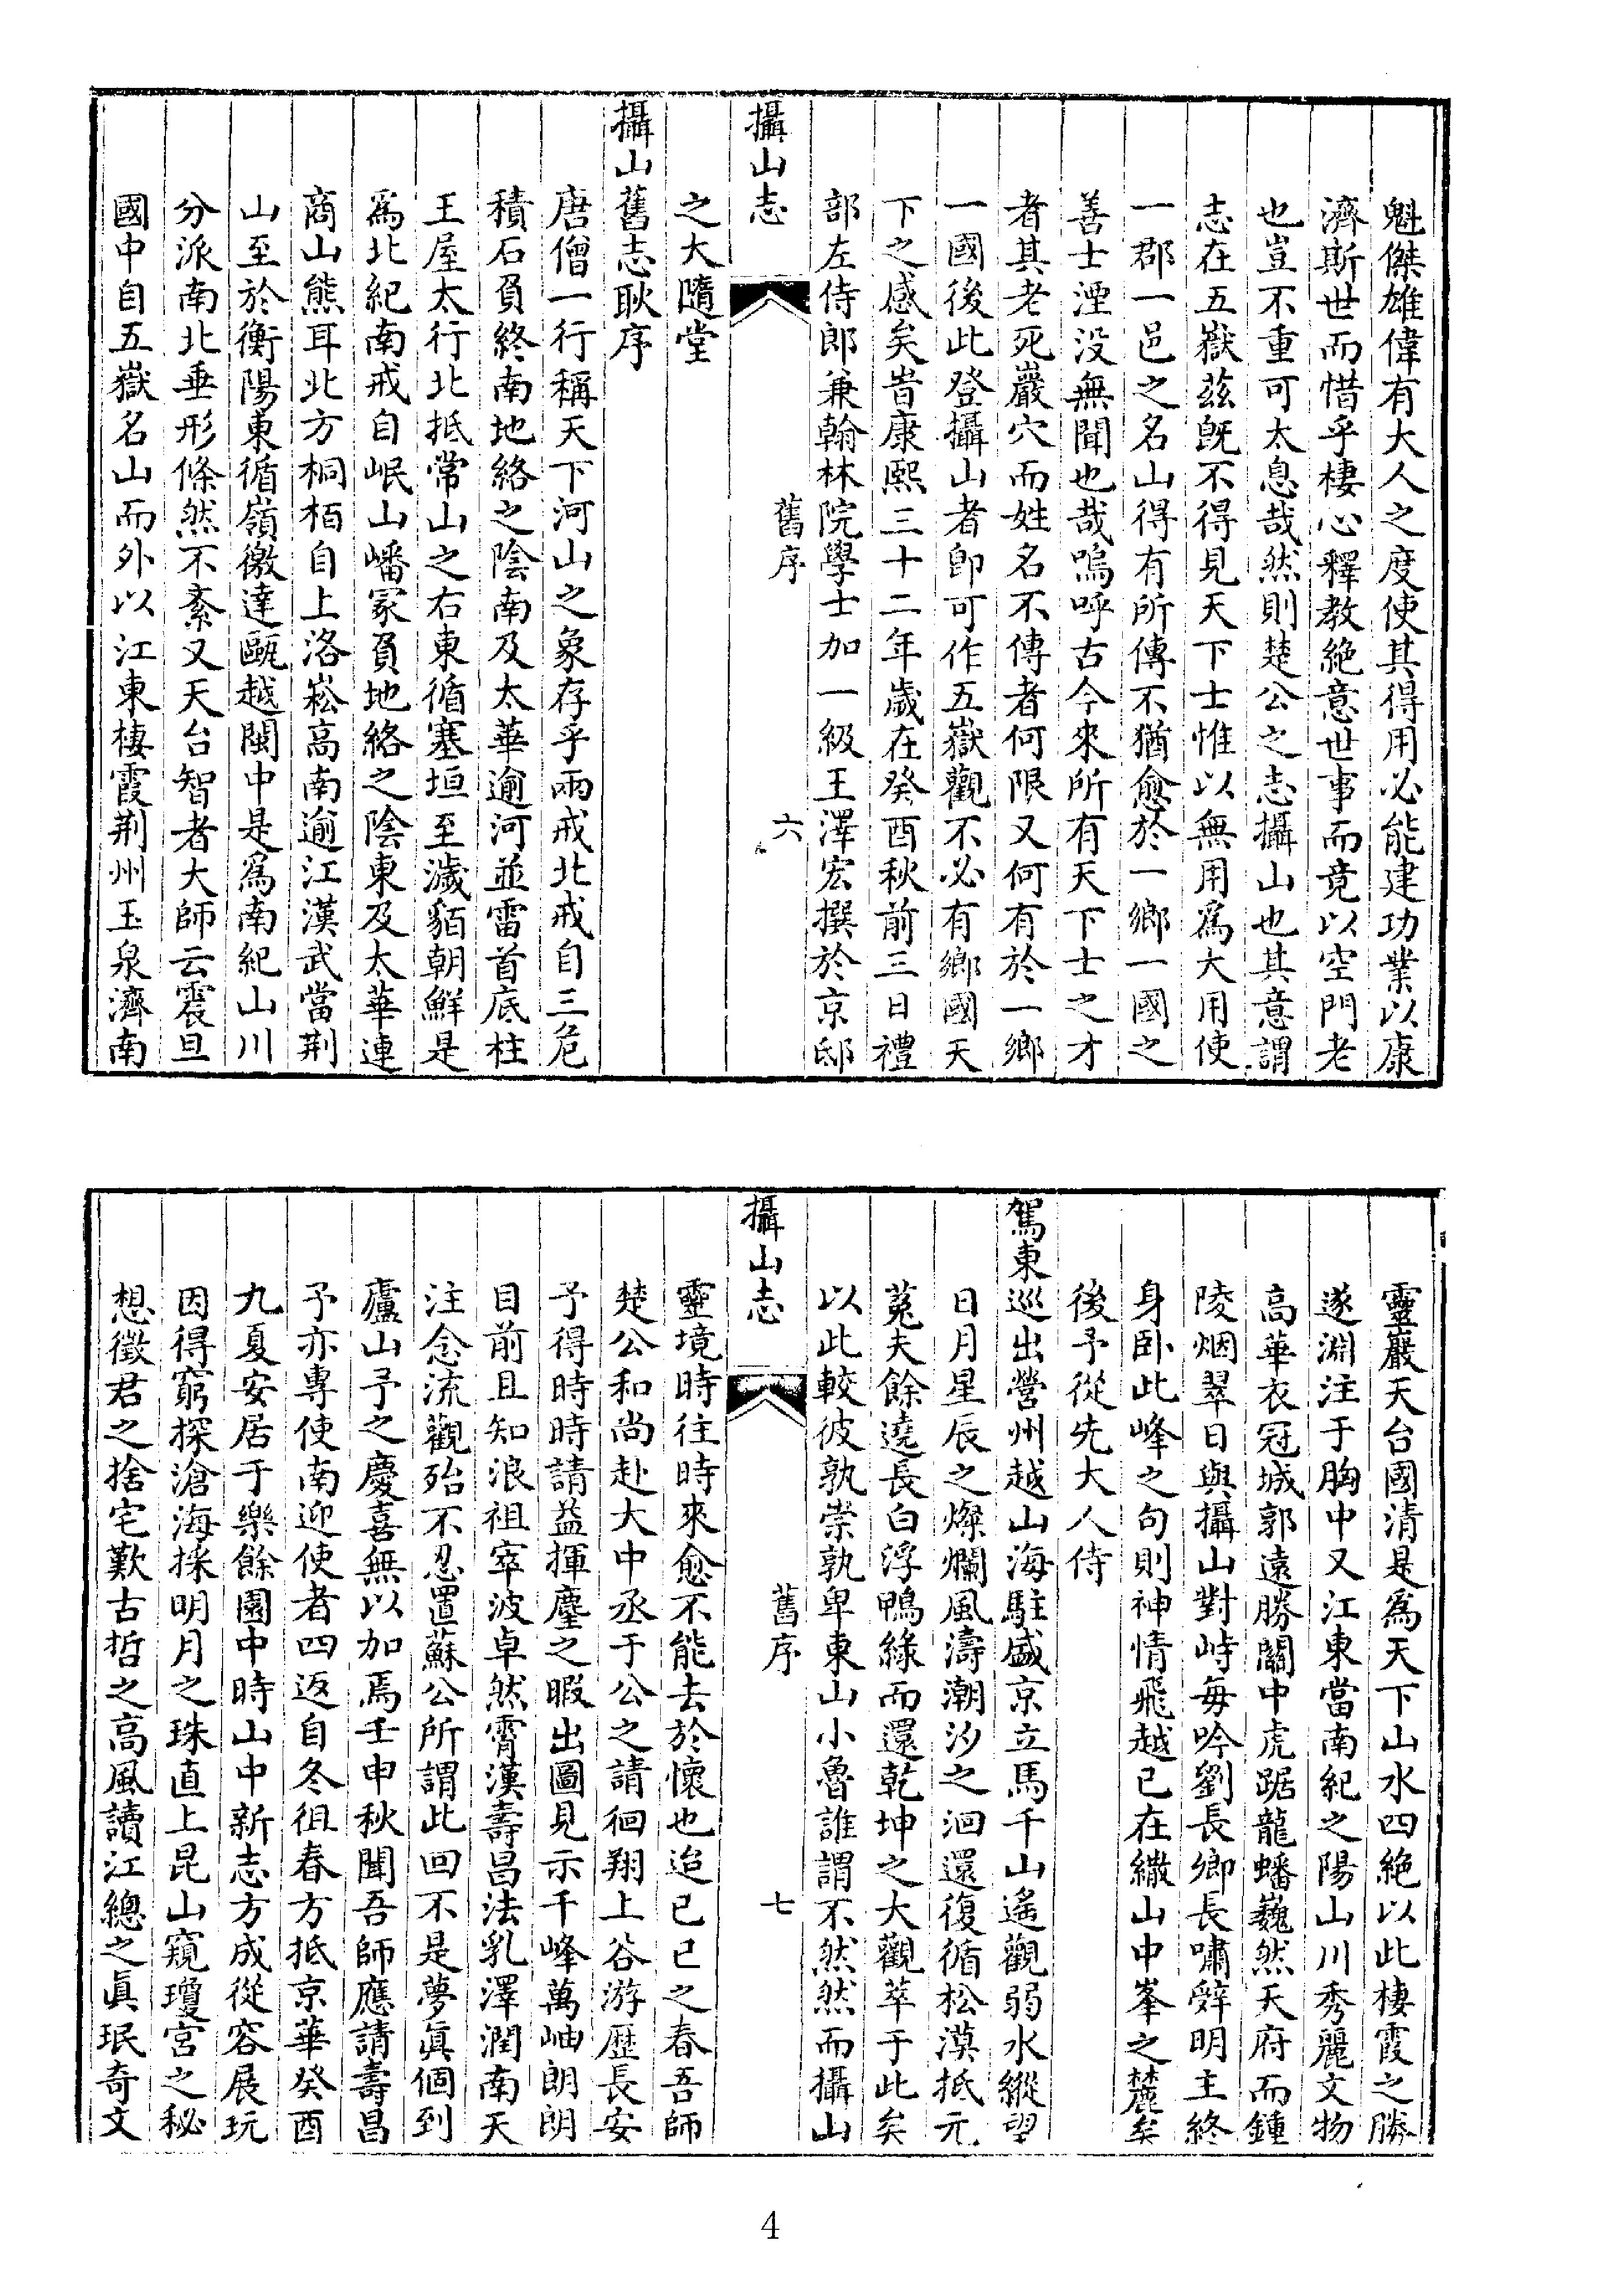 魁傑雄偉有大人之度使其得用必能建功業以康
濟斯世而惜乎棲心釋教絶意世事而竟以空門老
也豈不重可太息哉然則楚公之志攝山也其意謂
志在五嶽茲旣不得見天下士惟以無用爲大用使
一郡一邑之名山得有所傳不猶愈於一鄉一國之
善士湮没無聞也哉嗚呼古今來所有天下士之才
者其老死巖穴而姓名不傳者何限又何有於一鄉
一國後此登攝山者卽可作五嶽觀不必有鄉國天
下之感矣旹康熙三十二年歲在癸酉秋前三日禮
部左侍郎兼翰林院學士加一級王澤宏撰於京邸
攝山志
舊序
六
之大隨堂
攝山舊志耿序
唐僧一行稱天下河山之象存乎兩戒北戒自三危
積石負終南地絡之陰南及太華逾河並雷首底柱
王屋太行北抵常山之右東循塞垣至濊貊朝鮮是
爲北紀南戒自岷山嶓冢負地絡之陰東及太華連
商山熊耳北方桐栢自上洛崧高南逾江漢武當荆
山至於衡陽東循嶺徼達甌越閩中是爲南紀山川
分派南北垂形條然不紊又天台智者大師云震旦
國中自五嶽名山而外以江東棲霞荆州玉泉濟南
靈巖天台國清是爲天下山水四絶以此棲霞之勝
遂淵注于胸中又江東當南紀之陽山川秀麗文物
高華衣冠城郭遠勝關中虎踞龍蟠巍然天府而鍾
陵烟翠日與攝山對峙每吟劉長卿長嘯辭明主終
身卧此峰之句則神情飛越已在繖山中峯之麓矣
後予從先大人侍
駕東巡出營州越山海駐盛京立馬千山遙觀弱水縱望
日月星辰之燦爛風濤潮汐之洄還復循松漠抵元
菟夫餘遶長白浮鴨綠而還乾坤之大觀萃于此矣
以此較彼孰崇孰卑東山小魯誰謂不然然而攝山
攝山志
舊序
七
靈境時往時來愈不能去於懷也迨已巳之春吾師
楚公和尚赴大中丞于公之請徊翔上谷游歷長安
予得時時請益揮麈之暇出圖見示千峰萬岫朗朗
目前且知浪祖宰波卓然霄漢壽昌法乳澤潤南天
注念流觀殆不忍置蘇公所謂此回不是夢眞個到
廬山予之慶喜無以加焉壬申秋聞吾師應請壽昌
予亦專使南迎使者四返自冬徂春方抵京華癸酉
九夏安居于樂餘園中時山中新志方成從容展玩
因得窮探滄海採明月之珠直上昆山窺瓊宮之秘
想徵君之捨宅歎古哲之高風讀江總之眞珉奇文
4